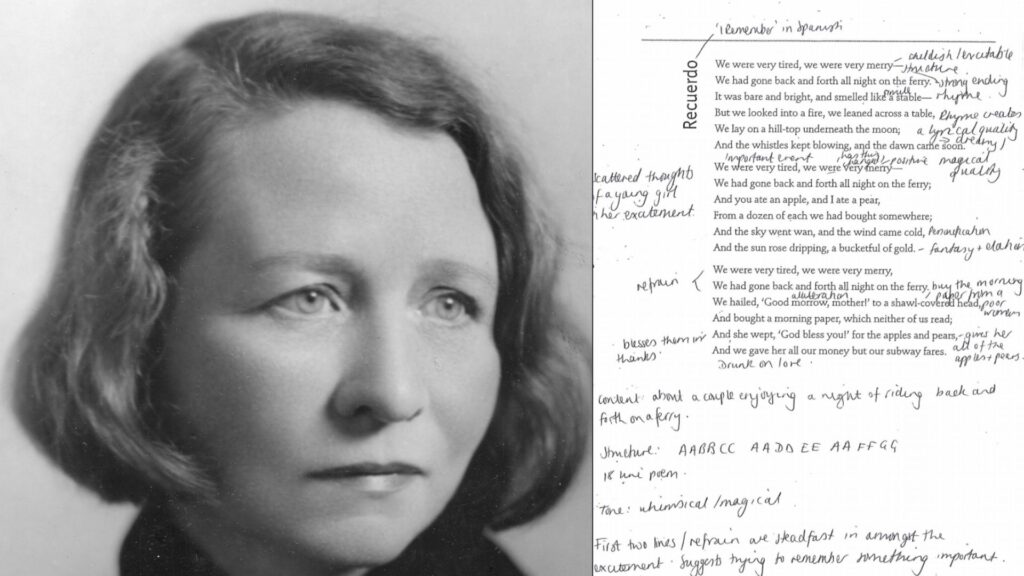 'I Remember' in Spanish
Recuerdo
We were very tired, we were very merry—
childish / excitable
structure
We had gone back and forth all night on the ferry.
strong ending
It was bare and bright, and smelled like a stable—
rhyme.
But we looked into a fire, we leaned across a table,
Rhyme creates
We lay on a hill-top underneath the moon;
a lyrical quality
And the whistles kept blowing, and the dawn came soon.
→ dreamy /
magical
quality
important event
positive
We were very tired, we were very merry—
We had gone back and forth all night on the ferry;
And you ate an apple, and I ate a pear,
scattered thoughts
of a young girl
in her excitement.
From a dozen of each we had bought somewhere;
And the sky went wan, and the wind came cold,
Personification
And the sun rose dripping, a bucketful of gold.
- fantasy + elation
We were very tired, we were very merry,
refrain
We had gone back and forth all night on the ferry.
buy the morning
paper from a
poor
woman
alliteration
We hailed, 'Good morrow, mother!' to a shawl-covered head,
And bought a morning paper, which neither of us read;
And she wept, 'God bless you!' for the apples and pears,
- gives her
all of the
apples + pears.
blesses them in
thanks.
And we gave her all our money but our subway fares.
Drunk on love.
content: about a couple enjoying a night of riding back and
forth on a ferry.
Structure: AABBCC AADDEE AAFFGG
18 line poem.
Tone: whimsical / magical
First two lines / refrain are steadfast in amongst the
excitement. Suggests trying to remember something important.